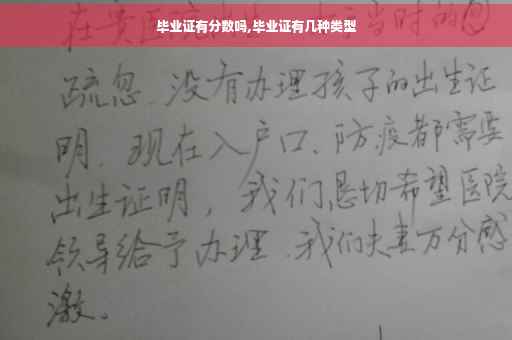 毕业证有分数吗,毕业证有几种类型
在贵医院 当时的
疏忽、没有办理孩子的出生证
明、现在入户口、防疫都需要
出生证明，我们恳切希望医院
领导给予办理、我们夫妻万分感
激。